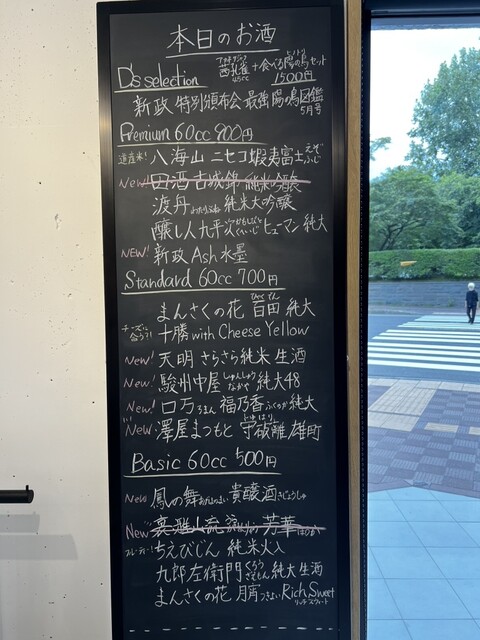 本日のお酒
D's selection 西孔雀 45cc +食べる陽の鳥セット 1500円
新政 特別頒布会 最強陽の鳥図鑑 5月号
Premium 60cc 900円
道産米! 八海山 ニセコ蝦夷富士 えぞふじ
New! 田酒 古城錦 純米吟醸
渡舟 わたりぶね 純米大吟醸
醸し人九平次 かもしびと くへいじ ヒューマン 純大
NEW! 新政 Ash 水墨
Standard 60cc 700円
まんさくの花 百田 ひゃくでん 純大
チーズに合う?! 十勝 with Cheese Yellow
New! 天明 さらさら純米 生酒
New! 駿州中屋 しゅんしゅう なかや 純大48
New! ロ万 ろまん 福乃香 ふくのか 純大
New 澤屋まつもと 守破離 しゅはり 雄町
Basic 60cc 500円
New 鳳の舞 貴醸酒 きじょうしゅ
New 芳華 ほうか
ちえびじん 純米火入
九郎左衛門 くろうざえもん 純大生酒
まんさくの花 Rich Sweet リッチスウィート